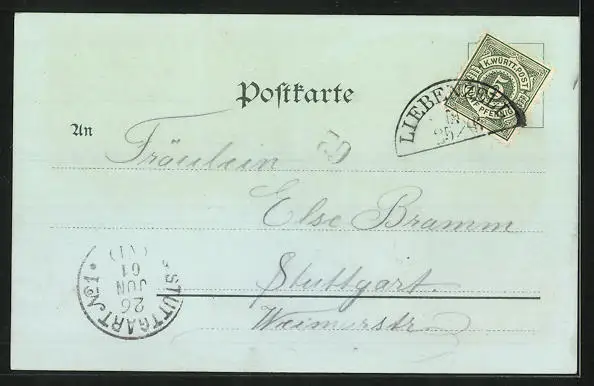 Postkarte
K.WÜRTT.POST
5
LIEBENZELL
An
Fräulein
Else Bramm
Stuttgart.
Weimarstr.
STUTTGART №1.
26
JUN
01
(VI)